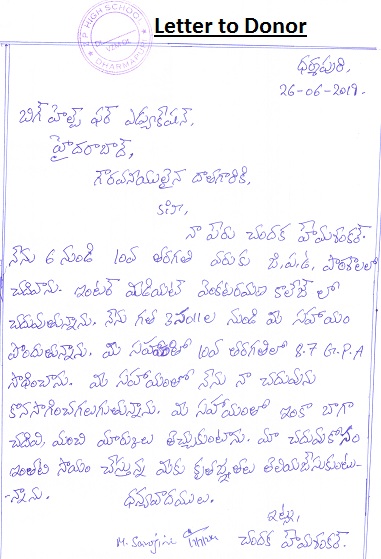 Z P HIGH SCHOOL
DHARMAPURI
Letter to Donor
ధర్మపురి,
26-06-2019.
బిగ్ హెల్ప్ ఫర్ ఎడ్యుకేషన్,
హైదరాబాద్,
గౌరవనీయులైన దాతగారికి,
నా పేరు చందక హేమశంకర్.
నేను 6 నుండి 10వ తరగతి వరకు జి.ప.ఉ. పాఠశాలలో
చదివాను. ఇంటర్ మీడియట్ వెంకటరమణ కాలేజ్ లో
చదువుతున్నాను. నేను గత 3సం॥ల నుండి మీ సహాయం
పొందుతున్నాను. మీ 10వ తరగతిలో 8.7 G.P.A
సాధించాను. మీ సహాయంతో నేను నా చదువును
కొనసాగించగలుగుతున్నాను. మీ సహాయంతో ఇంకా బాగా
చదివి, మంచి మార్కులు తెచ్చుకుంటాను. మా చదువుకోసం
ఇంతటి సాయం చేస్తున్న మీకు కృతజ్ఞతలు తెలియజేసుకుంటు-
-న్నాను.
ధన్యవాదములు.
ఇట్లు,
M. Sarojini
చందక హేమశంకర్.